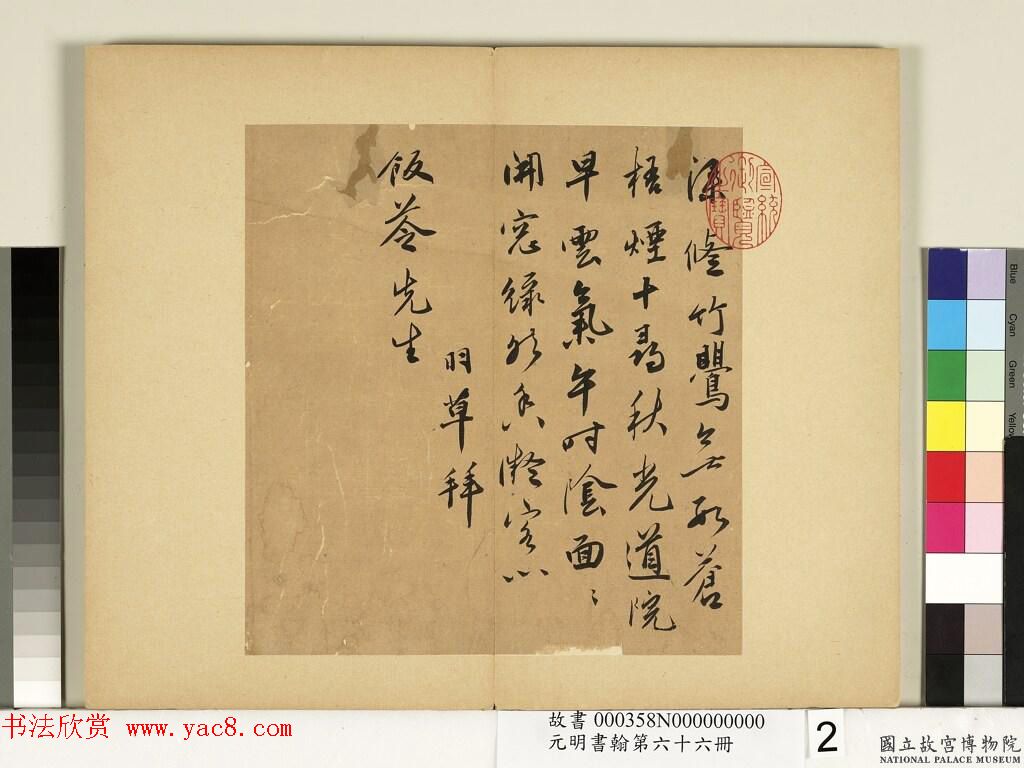 深修竹鸎無蒼
梧煙十尋秋光道院
早雲氣午時陰面〻
開窓緑然香凝客心
草拜
飯苓先生
宣統御覽之寶
Blue
Cyan
Green
Yellow
书法欣赏 www.yac8.com
故書 000358N000000000
元明書翰第六十六冊
2
國立故宮博物院
NATIONAL PALACE MUSEUM